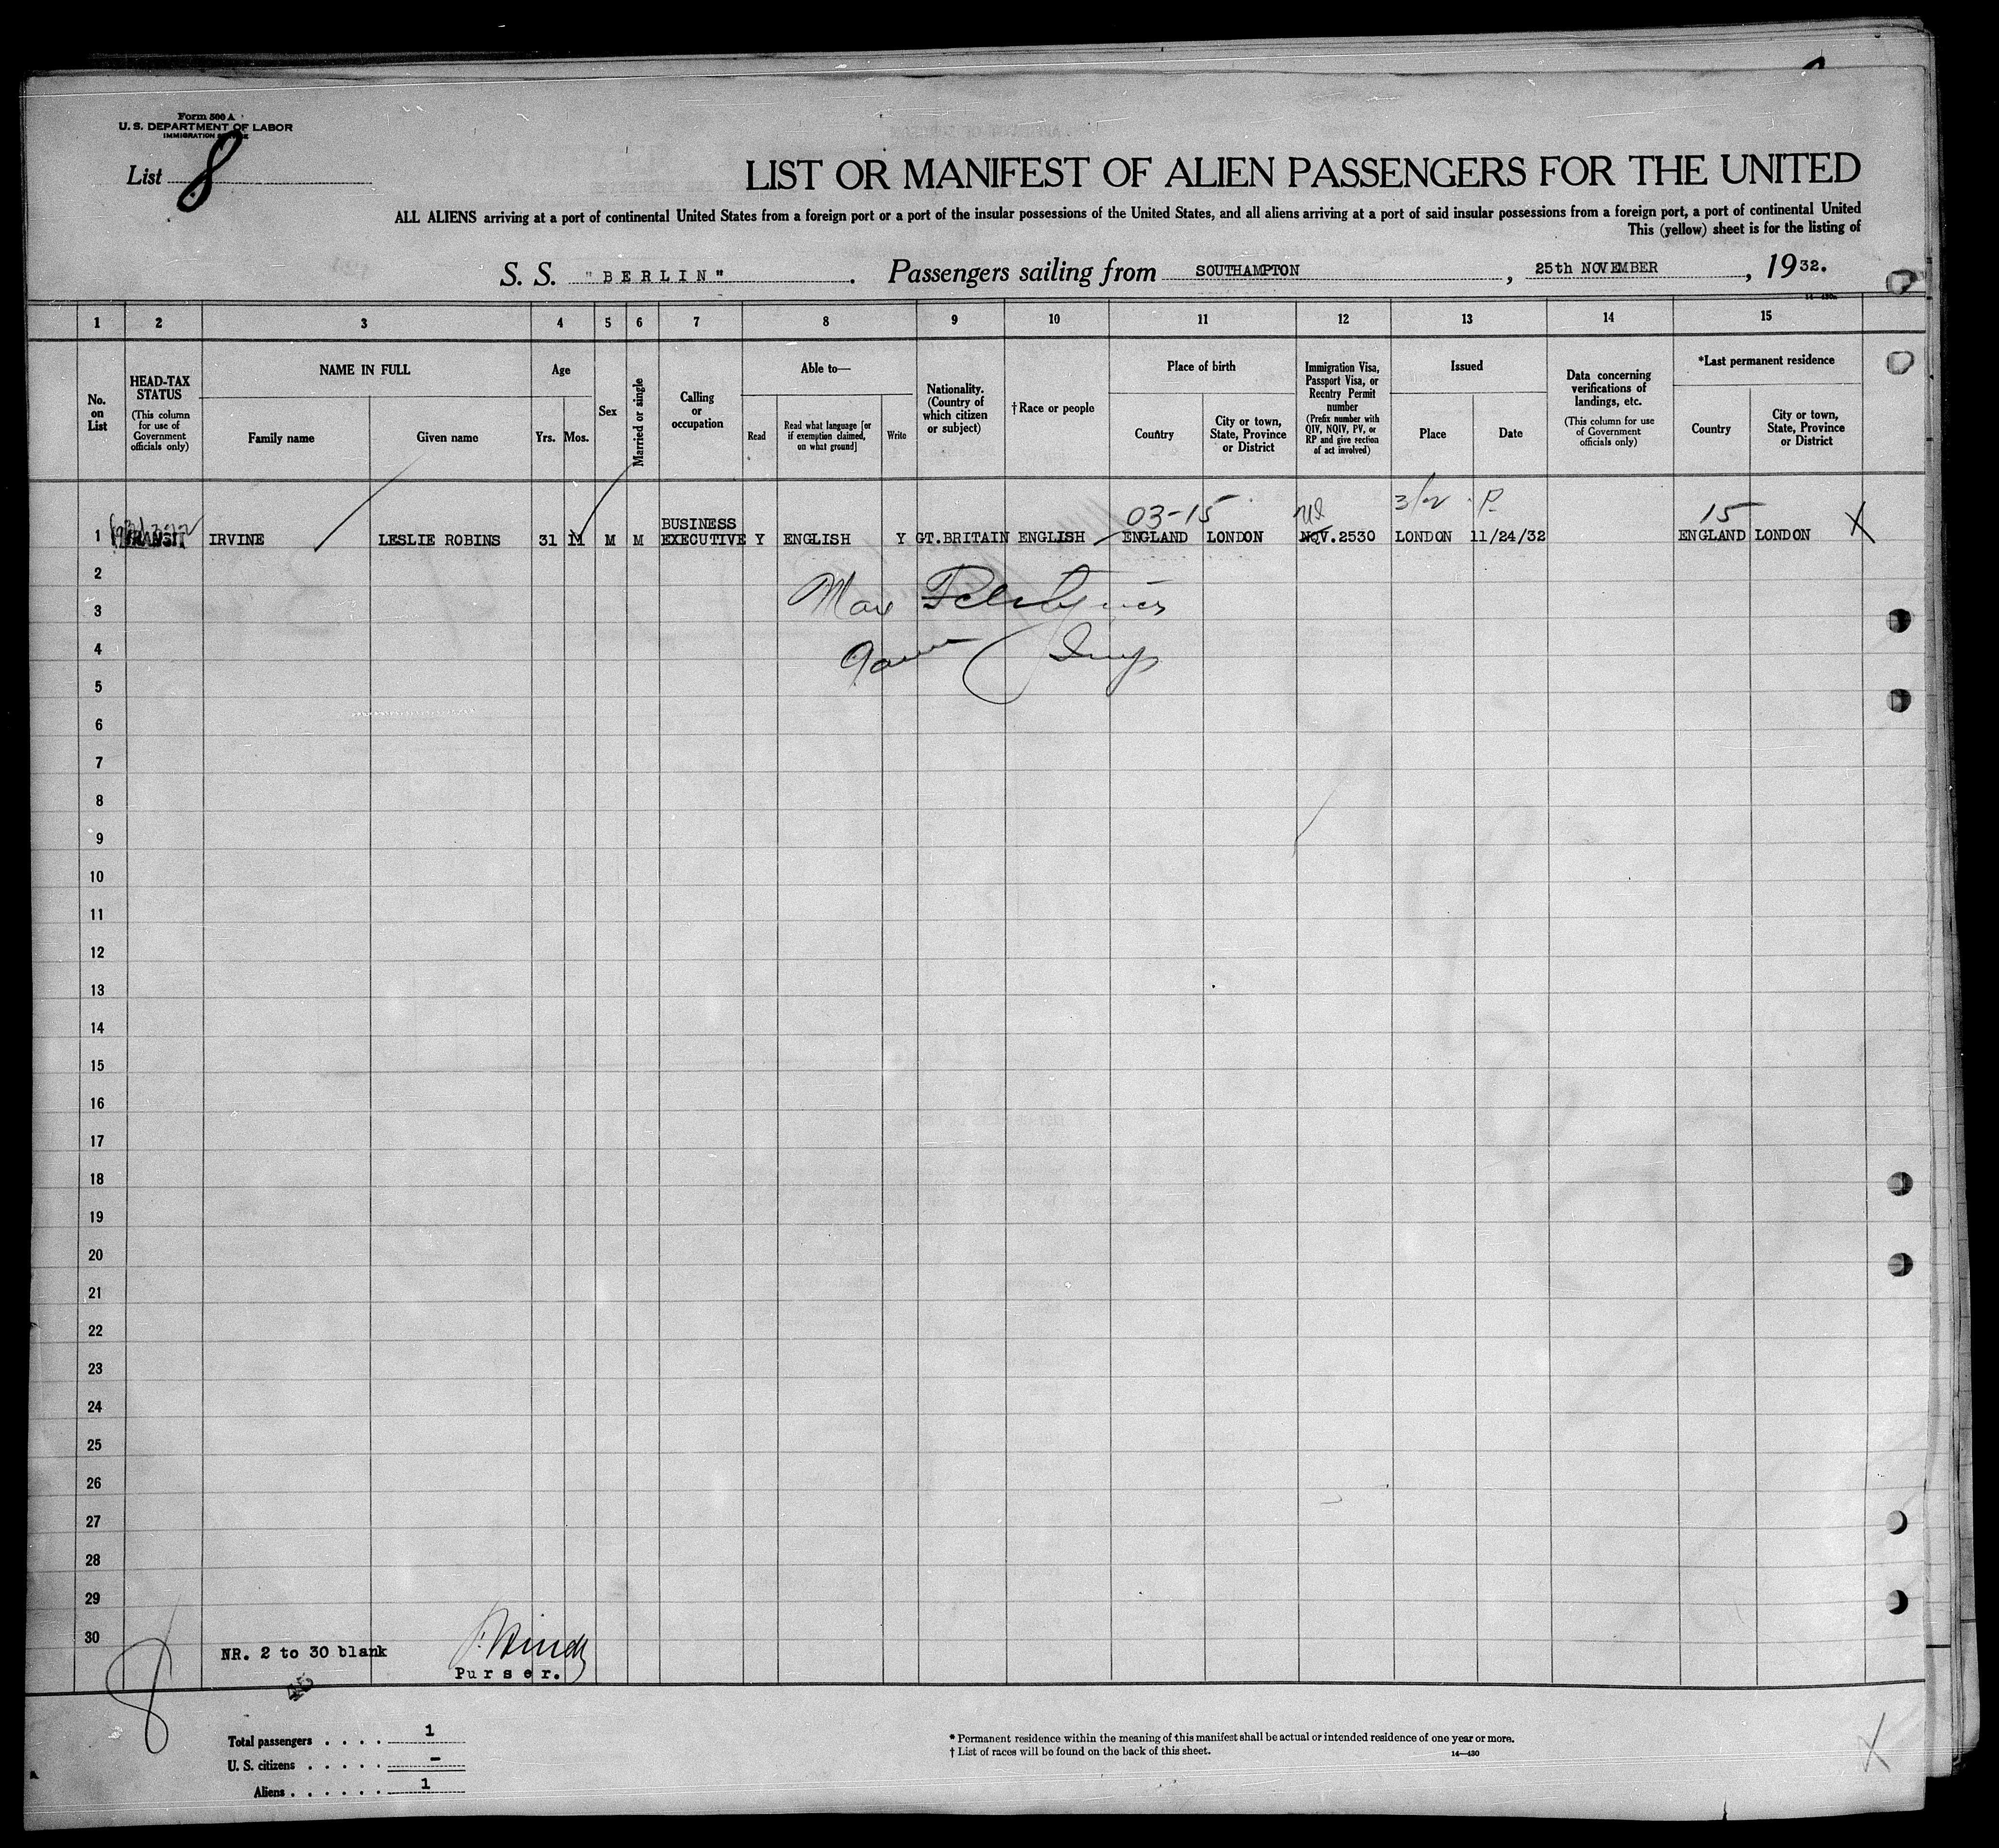 Form 500 A
U. S. DEPARTMENT OF LABOR
IMMIGRATION
List 8
LIST OR MANIFEST OF ALIEN PASSENGERS FOR THE UNITED
ALL ALIENS arriving at a port of continental United States from a foreign port or a port of the insular possessions of the United States, and all aliens arriving at a port of said insular possessions from a foreign port, a port of continental United
This (yellow) sheet is for the listing of
S. S. "BERLIN". Passengers sailing from SOUTHAMPTON, 25th NOVEMBER, 1932.
1 2 3 4 5 6 7 8 9 10 11 12 13 14 15
No. on List
HEAD-TAX STATUS (This column for use of Government officials only)
NAME IN FULL
Family name
Given name
Age
Yrs. Mos.
Sex
Married or single
Calling or occupation
Able to—
Read
Read what language [or if exemption claimed, on what ground]
Write
Nationality. (Country of which citizen or subject)
† Race or people
Place of birth
Country
City or town, State, Province or District
Immigration Visa, Passport Visa, or Reentry Permit number (Prefix number with QIV, NQIV, PV, or RP and give section of act involved)
Issued
Place
Date
Data concerning verifications of landings, etc. (This column for use of Government officials only)
*Last permanent residence
Country
City or town, State, Province or District
03-15 3/2 P. 15
1 TRANSIT IRVINE LESLIE ROBINS 31 11 M M BUSINESS EXECUTIVE Y ENGLISH Y GT.BRITAIN ENGLISH ENGLAND LONDON NQV.2530 LONDON 11/24/32 ENGLAND LONDON X
2
3 Max
4
5
6
7
8
9
10
11
12
13
14
15
16
17
18
19
20
21
22
23
24
25
26
27
28
29
30
NR. 2 to 30 blank
Purser.
8
Total passengers . . . . 1
U. S. citizens . . . . . -
Aliens . . . . . . 1
* Permanent residence within the meaning of this manifest shall be actual or intended residence of one year or more.
† List of races will be found on the back of this sheet.
14—430
X